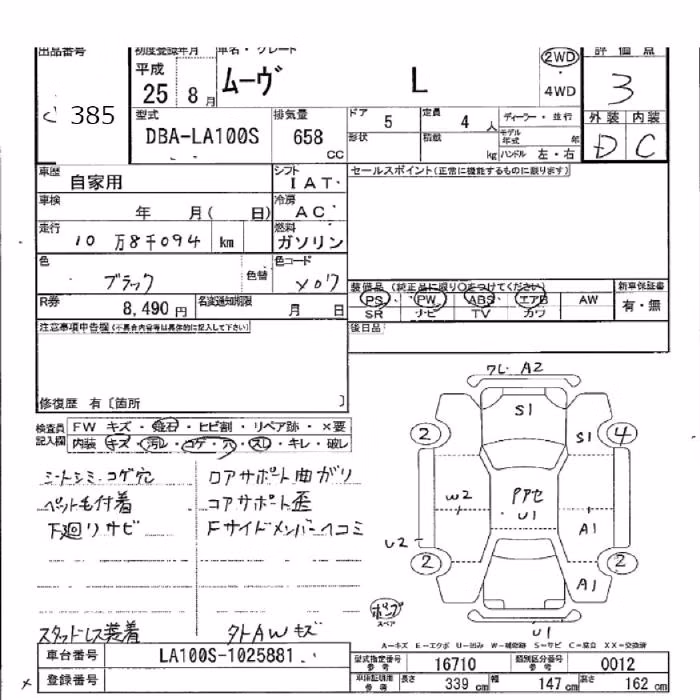 出品番号 初度登録年月 車名・グレード 評価点
385 平成 25 8月 ムーヴ L 2WD 4WD 3
型式 DBA-LA100S 排気量 658 CC ドア 5 定員 4 人 ディーラー・並行 外装 内装
形状 積載 kg モデル年式 年 ハンドル 左・右 D C
車歴 自家用 シフト IAT セールスポイント(正常に機能するものに限ります)
車検 年 月( 日) 冷房 AC
走行 10万8千094 km 燃料 ガソリン
色 ブラック 色替 色コード X07
装備品 (純正品に限り○をつけてください) 新車保証書
PS PW ABS エアB AW 有・無
SR ナビ TV カワ
R券 8,490円 名変通知期限 月 日 後日品
注意事項申告欄(不具合内容等は具体的に記入して下さい)
修復歴 有〔箇所 〕
検査員記入欄 FW キズ・飛石・ヒビ割・リペア跡・×要
内装 キズ・汚レ・コゲ・穴・スレ・キレ・破レ
シートシミ・コゲ穴 ロアサポート曲ガリ
ペット毛付着 コアサポート歪
下廻リサビ Fサイドメンバーヘコミ
スタッドレス装着 タトAWキズ
ワレ A2
S1
2 S1 4
W2 アアセ U1 A1
U2 2 2
A1
ポンプ スペア
U1
A=キズ E=エクボ U=凹み W=補修跡 S=サビ C=腐立 XX=交換済
車台番号 LA100S-1025881
登録番号
型式指定番号 参考 16710 類別区分番号 参考 0012
車庫証明用 参考 長さ 339 cm 幅 147 cm 高さ 162 cm